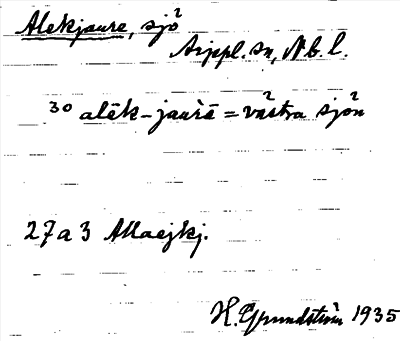 Alekjaure, sjö
Arjpl. sn, Nb. l.
30 alēk-jaurē = västra sjön
27 a 3
H. Grundström 1935